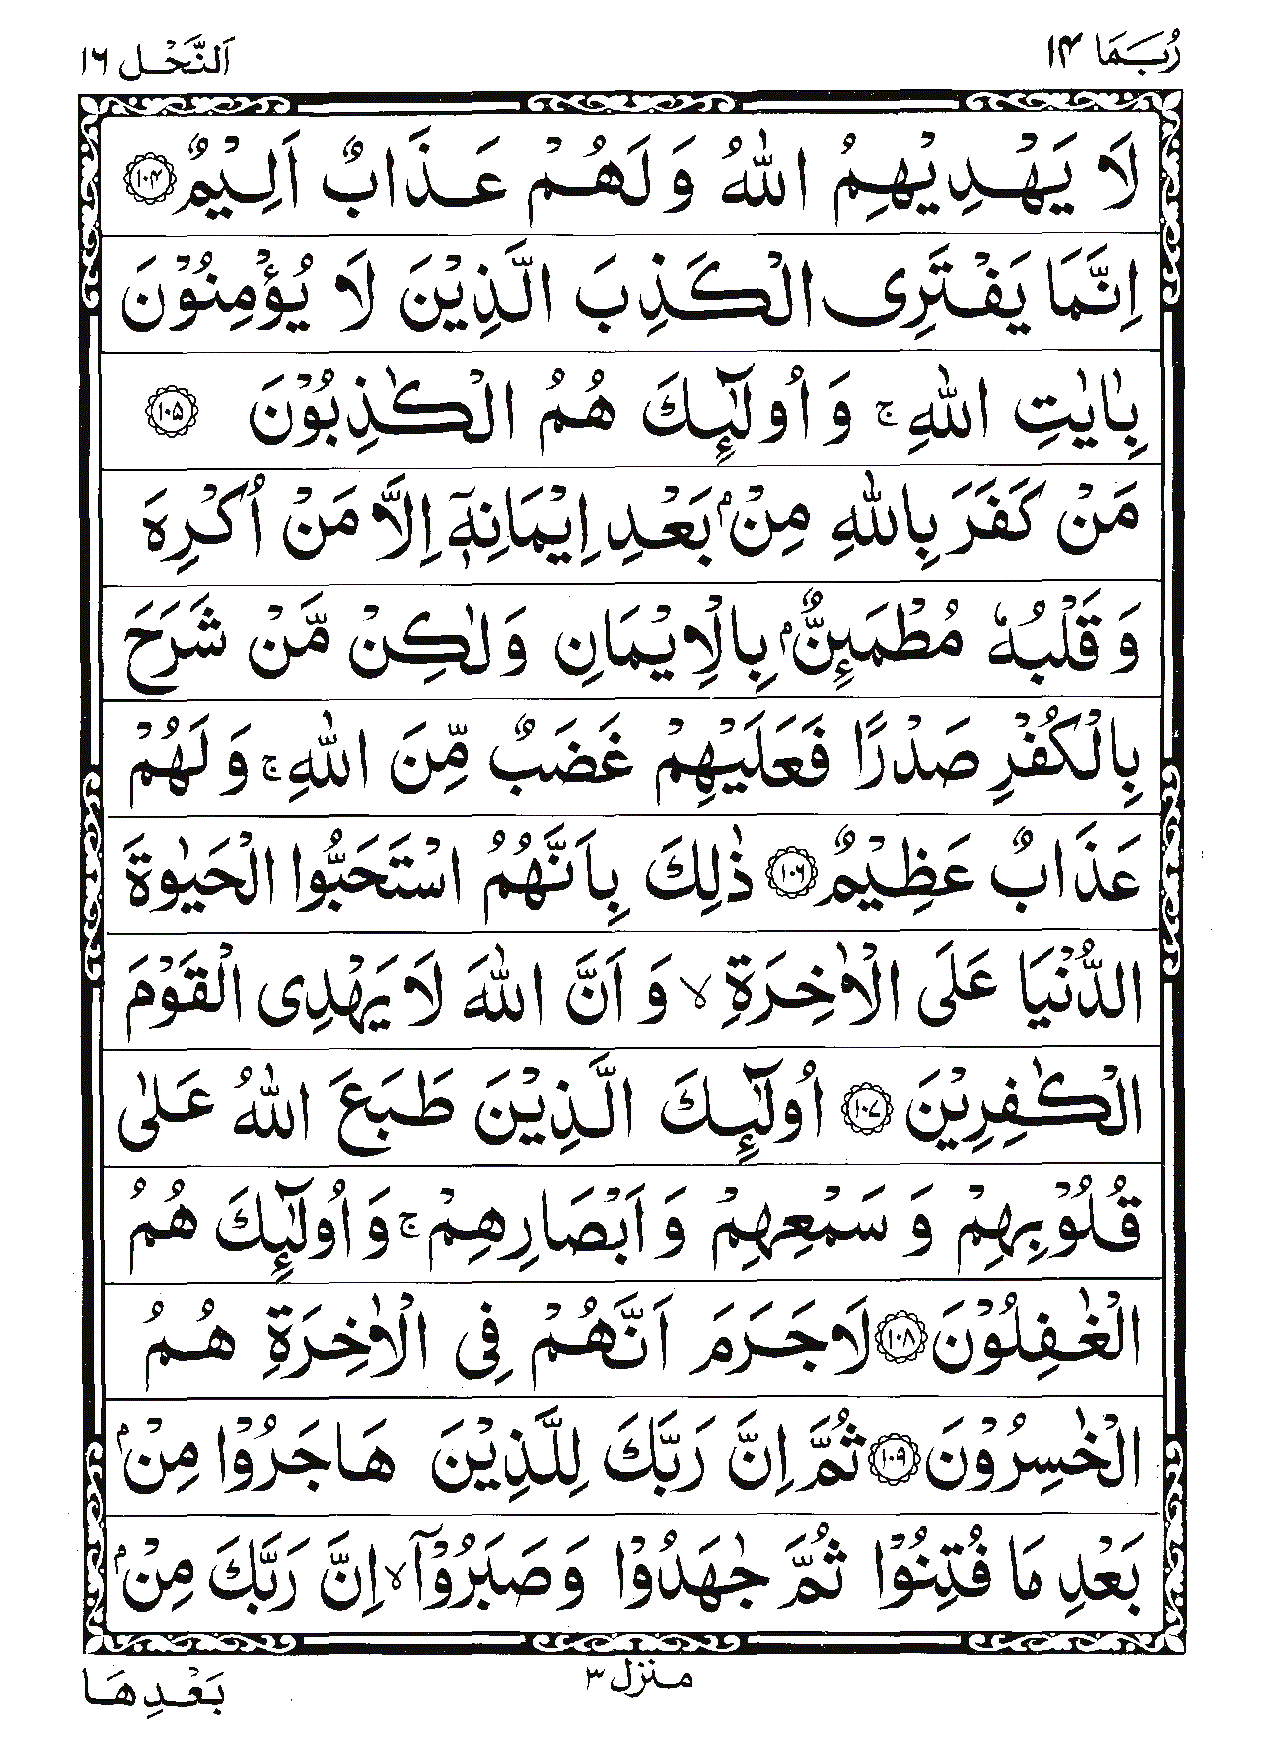 رُبَمَا ١۴
اَلنَّحْل ١٦
لَا يَهْدِيْهِمُ اللّٰهُ وَ لَهُمْ عَذَابٌ اَلِيْمٌ ﴿١٠۴﴾
اِنَّمَا يَفْتَرِى الْكَذِبَ الَّذِيْنَ لَا يُؤْمِنُوْنَ
بِاٰيٰتِ اللّٰهِ ۚ وَ اُولٰٓئِكَ هُمُ الْكٰذِبُوْنَ ﴿١٠۵﴾
مَنْ كَفَرَ بِاللّٰهِ مِنْۢ بَعْدِ اِيْمَانِهٖٓ اِلَّا مَنْ اُكْرِهَ
وَ قَلْبُهٗ مُطْمَئِنٌّۢ بِالْاِيْمَانِ وَلٰكِنْ مَّنْ شَرَحَ
بِالْكُفْرِ صَدْرًا فَعَلَيْهِمْ غَضَبٌ مِّنَ اللّٰهِ ۚ وَ لَهُمْ
عَذَابٌ عَظِيْمٌ ﴿١٠٦﴾ ذٰلِكَ بِاَنَّهُمُ اسْتَحَبُّوا الْحَيٰوةَ
الدُّنْيَا عَلَى الْاٰخِرَةِ ۙ وَ اَنَّ اللّٰهَ لَا يَهْدِى الْقَوْمَ
الْكٰفِرِيْنَ ﴿١٠٧﴾ اُولٰٓئِكَ الَّذِيْنَ طَبَعَ اللّٰهُ عَلٰى
قُلُوْبِهِمْ وَ سَمْعِهِمْ وَ اَبْصَارِهِمْ ۚ وَ اُولٰٓئِكَ هُمُ
الْغٰفِلُوْنَ ﴿١٠٨﴾ لَا جَرَمَ اَنَّهُمْ فِى الْاٰخِرَةِ هُمُ
الْخٰسِرُوْنَ ﴿١٠٩﴾ ثُمَّ اِنَّ رَبَّكَ لِلَّذِيْنَ هَاجَرُوْا مِنْۢ
بَعْدِ مَا فُتِنُوْا ثُمَّ جٰهَدُوْا وَصَبَرُوْٓا ۙ اِنَّ رَبَّكَ مِنْۢ
منزل ٣
بَعْدِهَا